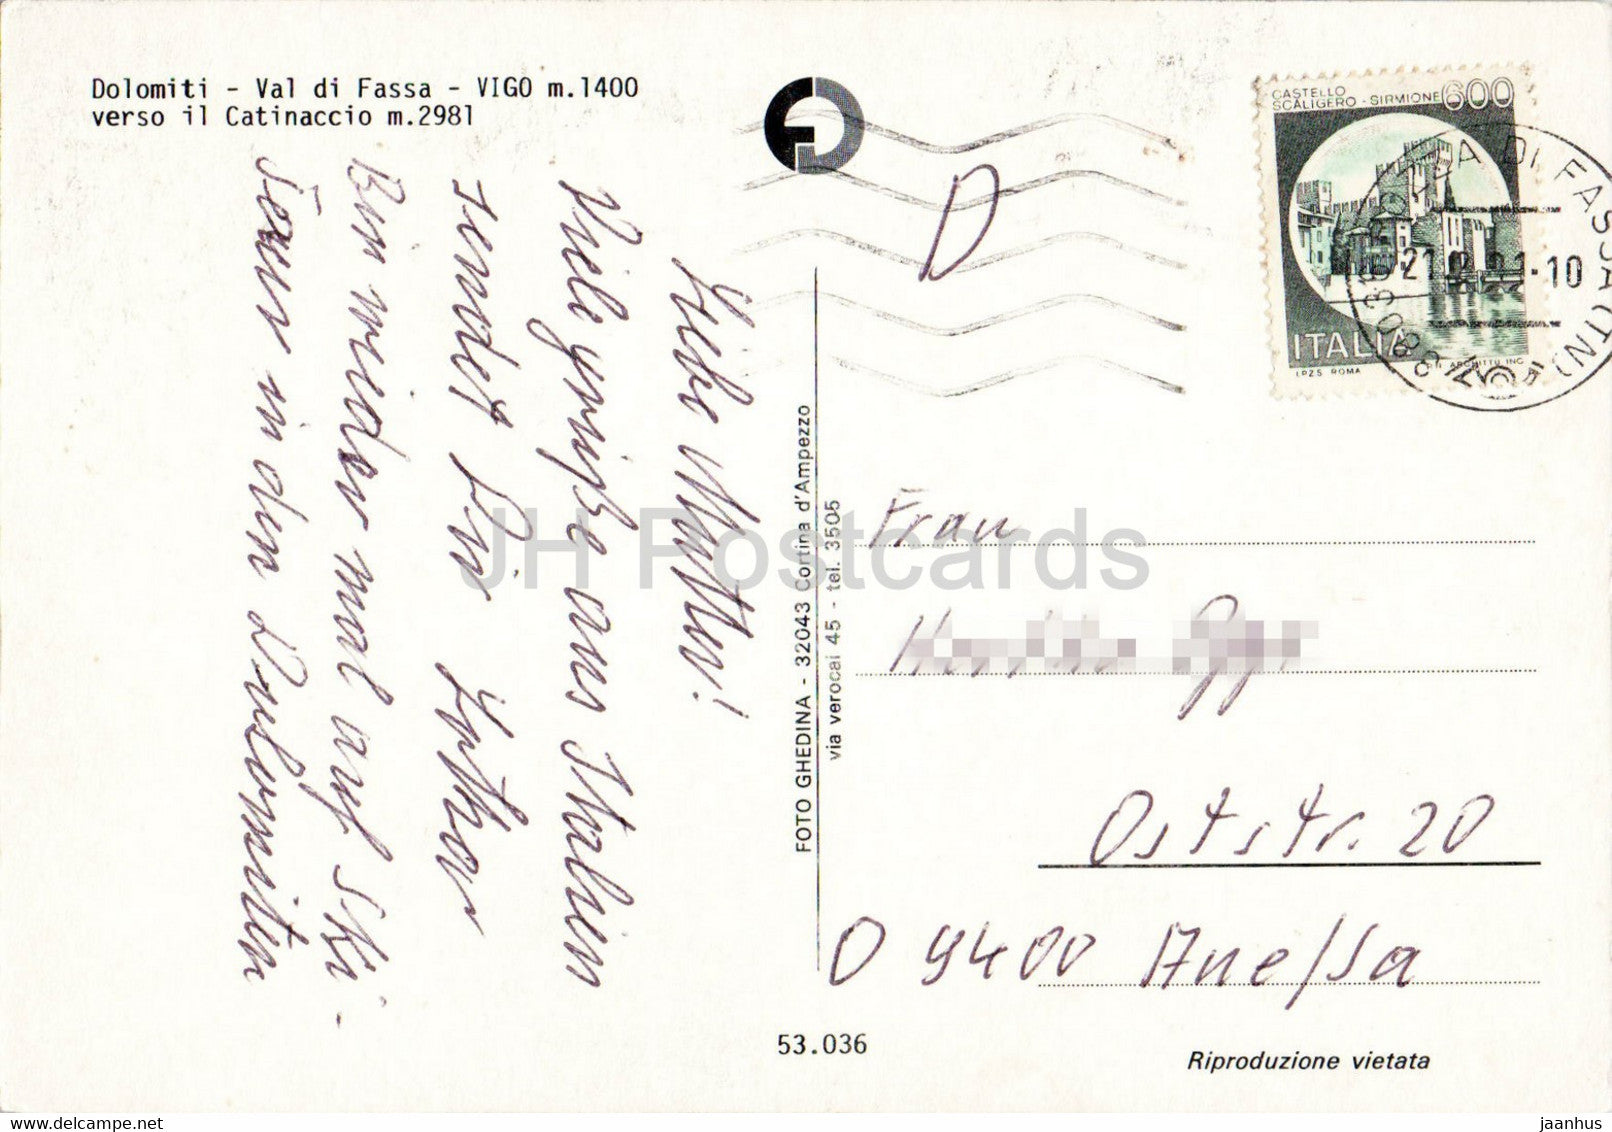 Dolomiti - Val di Fassa - VIGO m.1400
verso il Catinaccio m.2981
Liebe Mutter!
Viele grüße aus Italien
sendet Dir Lothar
Bin wieder mal auf Ski-
in den Dolomiten
FOTO GHEDINA - 32043 Cortina d'Ampezzo
via verocai 45 - tel. 3505
D
CASTELLO
SCALIGERO - SIRMIONE 600
ITALIA
I.P.Z.S. ROMA
DI FASSA (TN)
38039
Frau
Oststr. 20
O 9400 Aue/Sa
53.036
Riproduzione vietata
JH Postcards
jaanhus
www.delcampe.net